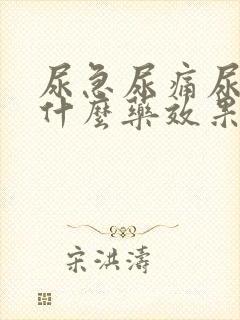 尿急尿痛尿
什麼藥效果
宋洪濤